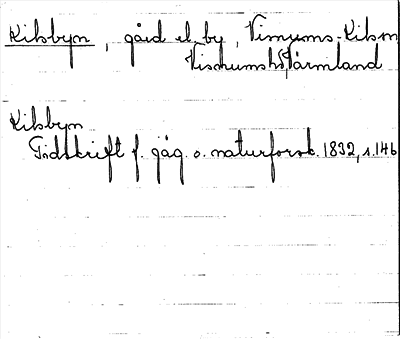 Kilsbyn, gård el. by, Visnums-Kils sn
Visnums hd, Värmland
Kilsbyn
Tidskrift f. jäg. o. naturforsk. 1832, s. 146